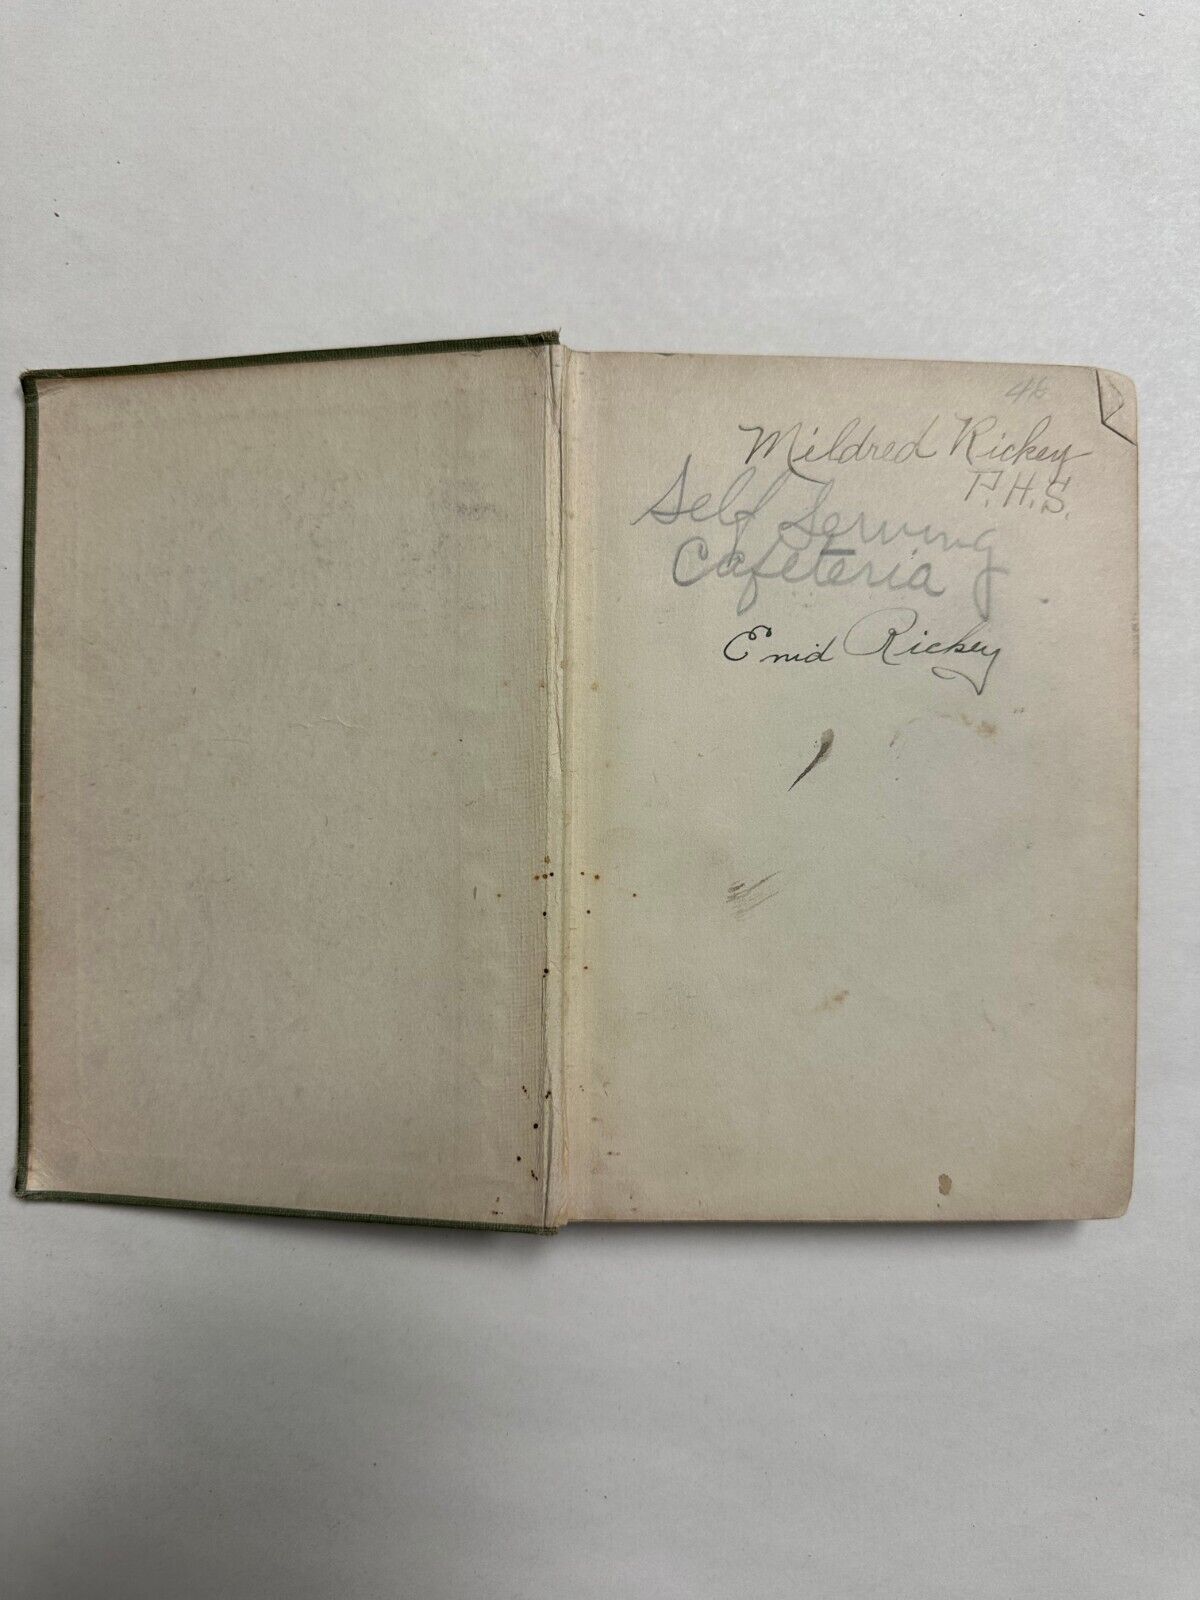 Mildred Rickey
P.H.S.
Self Serving
Cafeteria
Enid Rickey